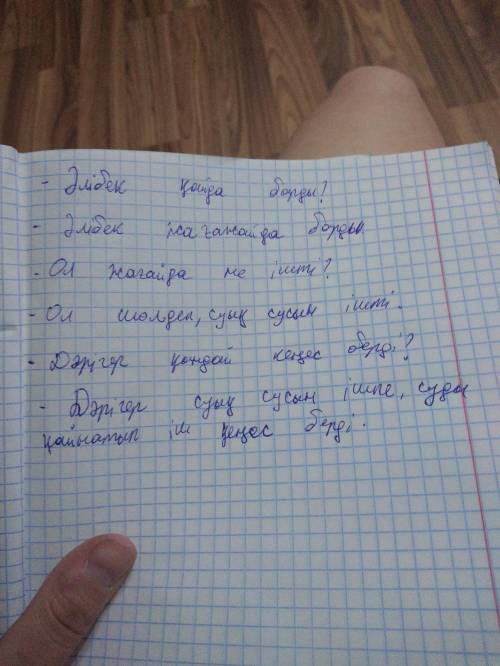 - Әлібек қайда барды?
- Әлібек жағажайда барды.
- Ол жағайда не ішті?
- Ол шөлдеп, суық сусын ішті.
- Дәрігер қандай кеңес берді?
- Дәрігер суық сусын ішпе, суды
қайнатып іш кеңес берді.